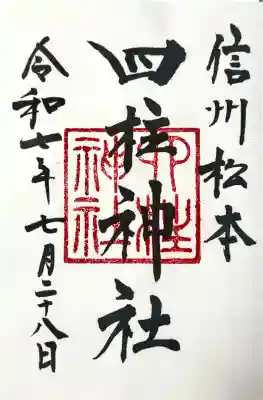 信州松本
四柱神社
令和七年七月二十八日
四柱
神社